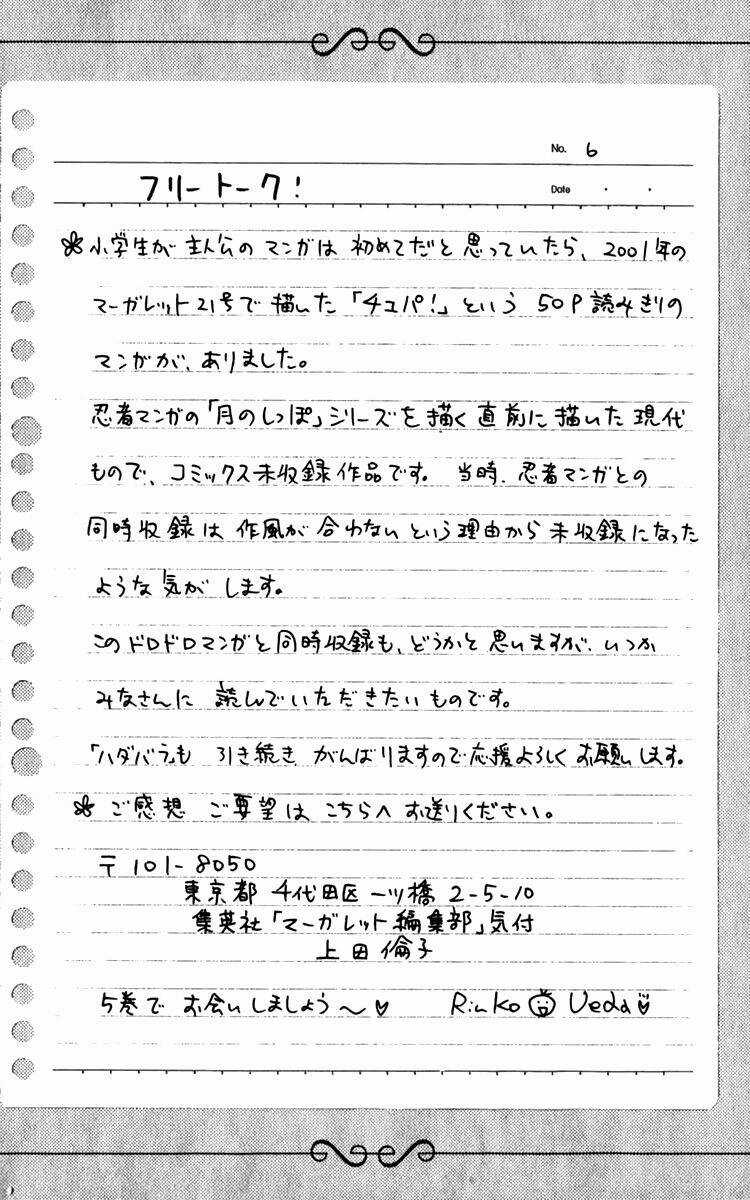 No. 6
フリートーク!
Date ・ ・
小学生が主人公のマンガは 初めてだと思っていたら、2001年の
マーガレット21号で描いた「チュパ!」という 50P読みきりの
マンガが、ありました。
忍者マンガの「月のしっぽ」シリーズを描く直前に描いた現代
もので、コミックス未収録作品です。 当時、忍者マンガとの
同時収録は 作風が合わないという理由から未収録になった
ような気がします。
このドロドロマンガと同時収録も、どうかと思いますが、いつか
みなさんに 読んでいただきたいものです。
「ハダバラ」も 引き続き がんばりますので応援よろしくお願いします。
ご感想 ご要望は こちらへお送りください。
〒101-8050
東京都 千代田区一ツ橋 2-5-10
集英社「マーガレット編集部」気付
上田倫子
5巻で お会いしましょう〜♡
Rinko Ueda